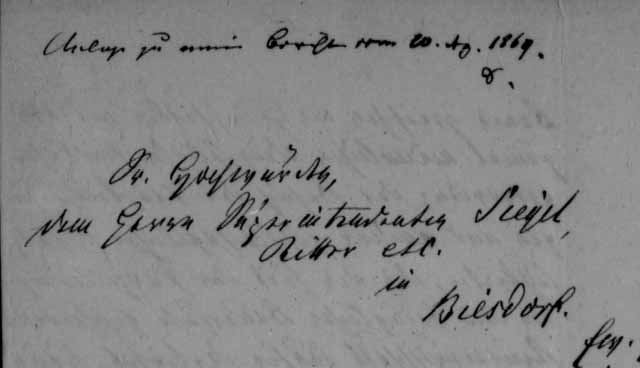 Anlage zu mein Bericht vom 20. Ag. 1869.
S.
Sr. Hochwürden,
dem Herrn Superintendenten Siegel,
Ritter etc.
in
Biesdorf.
Ew.